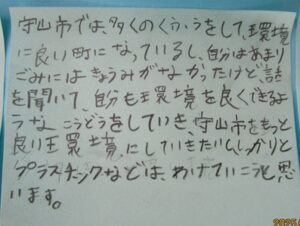 守山市では、多くのくふうをして、環境
に良い町になっているし、自分はあまり
ごみにはきょうみがなかったけど、話
を聞いて、自分も環境を良くできるよ
うなこうどうをしていき、守山市をもっと
良い環境にしていきたいし、しっかりと
プラスチックなどは、わけていこうと思
います。